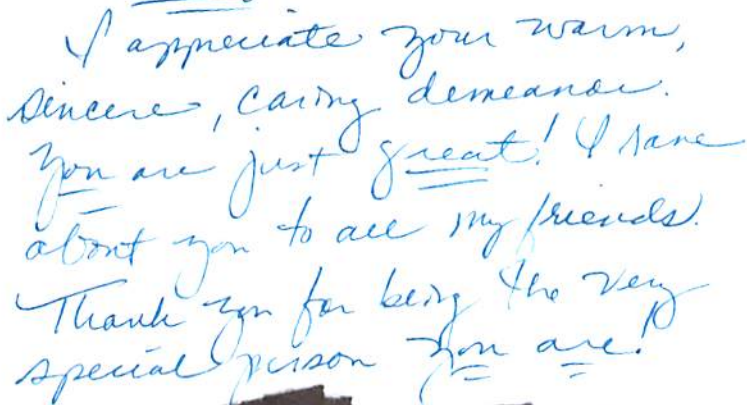 I appreciate your warm,
sincere, caring demeanor.
You are just great! I rave
about you to all my friends.
Thank you for being the very
special person you are!